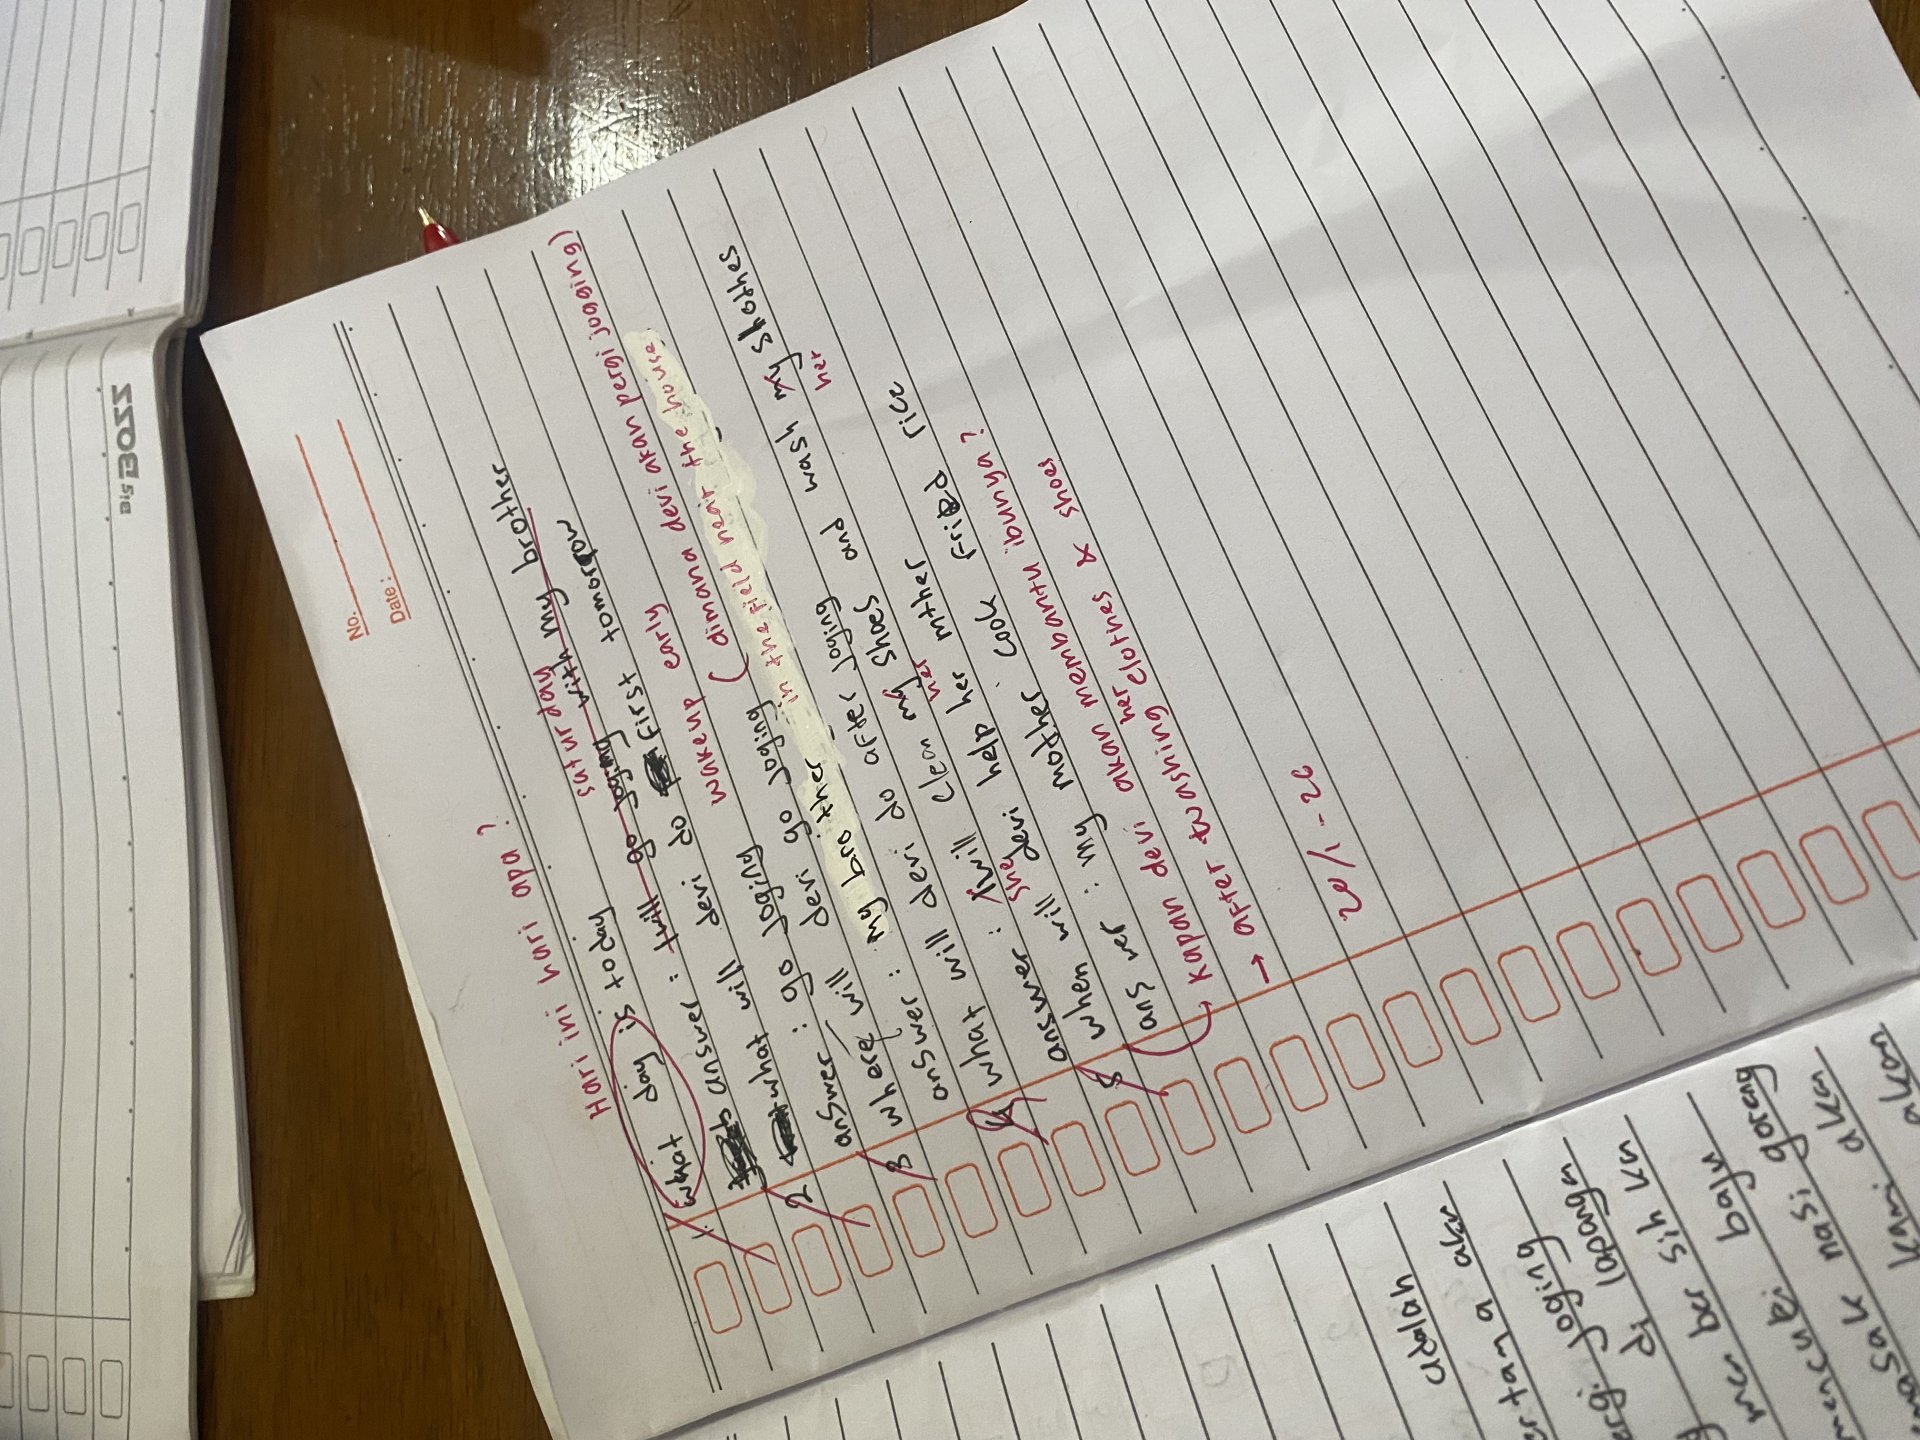 No.
Date:
Hari ini hari apa?
1. what day is today saturday
answer : will go joging with my brother
what will devi do first tomorow
answer : go joging wakeup early
2 where will devi go joging (dimana devi akan pergi jogging)
answer : my brother in the field near the house
3 what will devi do after joging
answer : I will clean my shoes and wash my shothes
she her her
4 when will devi help her mther
answer : my mother cook fried rice
5 kapan devi akan membantu ibunnya?
→ after washing her clothes & shoes
20/1-26
adalah
akan
joging
di lapangan
ber sih kn
mencuci baju
nasi goreng
kami akan
akan